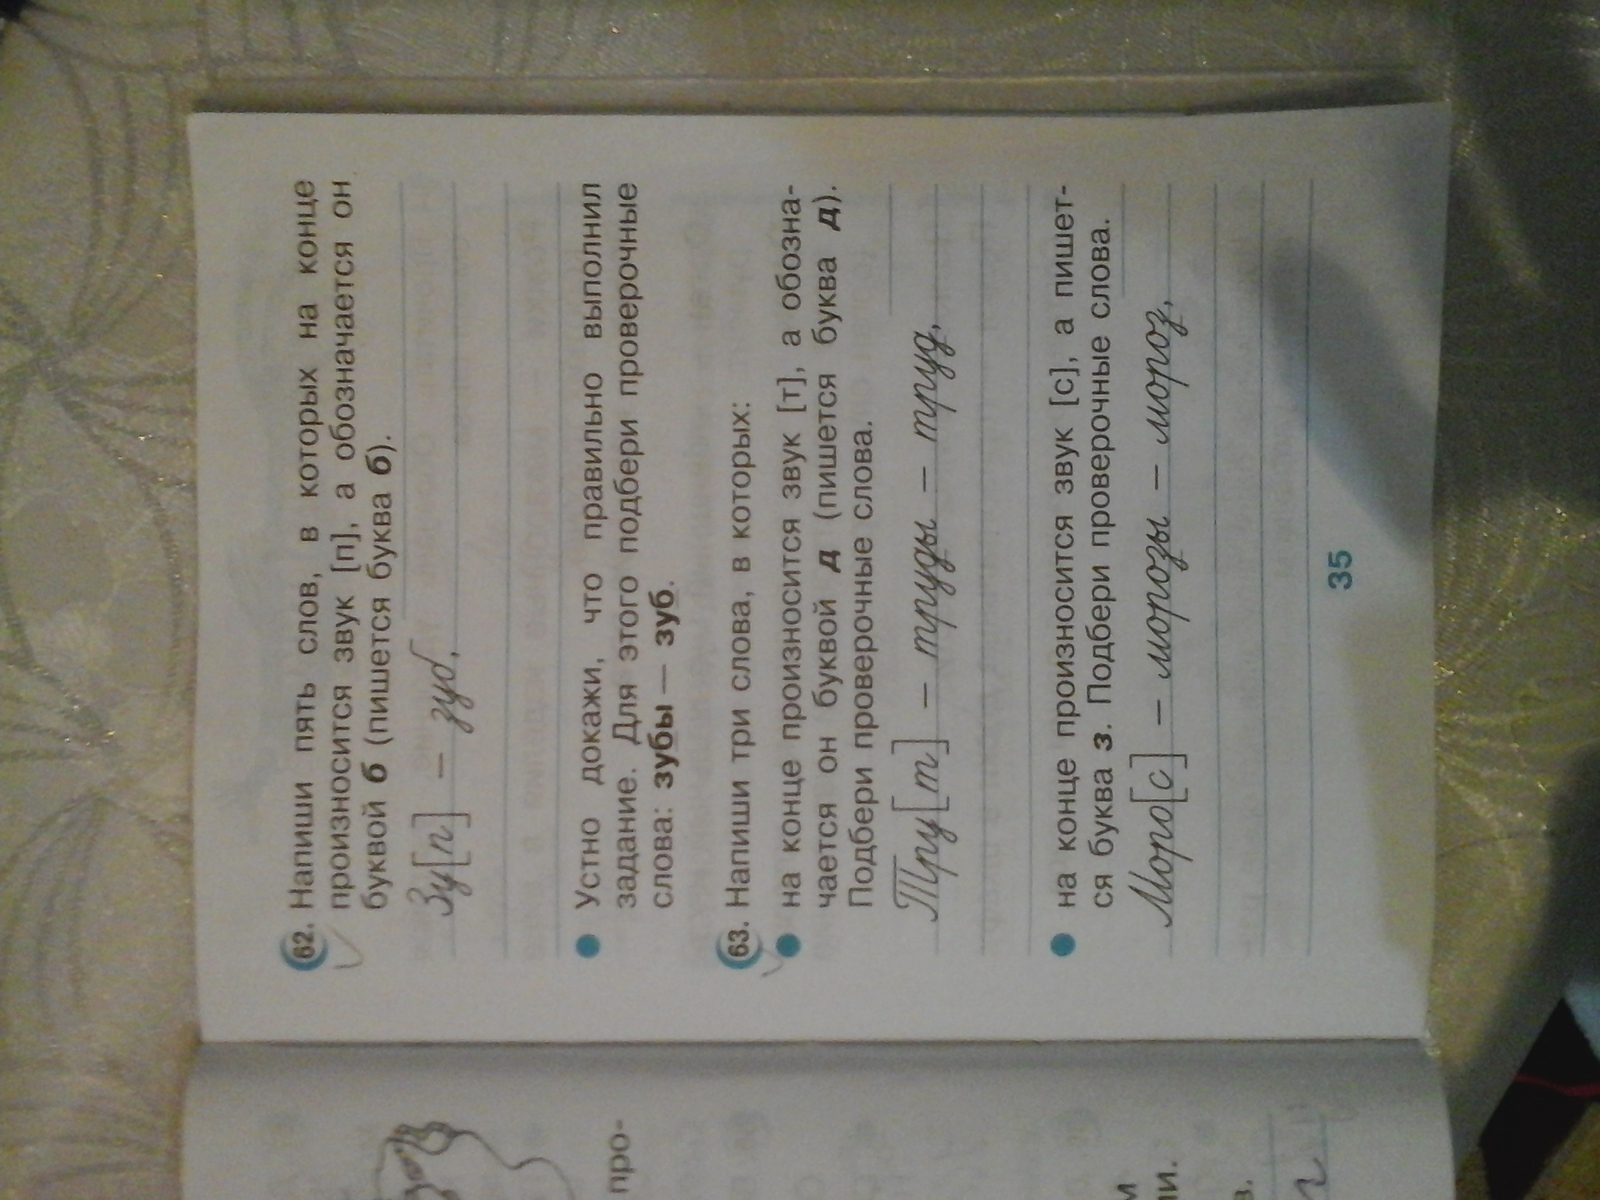 62. Напиши пять слов, в которых на конце
произносится звук [п], а обозначается он
буквой б (пишется буква б).
Зу[п] – зуб,
Устно докажи, что правильно выполнил
задание. Для этого подбери проверочные
слова: зубы — зуб.
63. Напиши три слова, в которых:
на конце произносится звук [т], а обозна-
чается он буквой д (пишется буква д).
Подбери проверочные слова.
Тру[т] – труды – труд,
на конце произносится звук [с], а пишет-
ся буква з. Подбери проверочные слова.
Моро[с] – морозы – мороз,
35
про-
ли.
в.